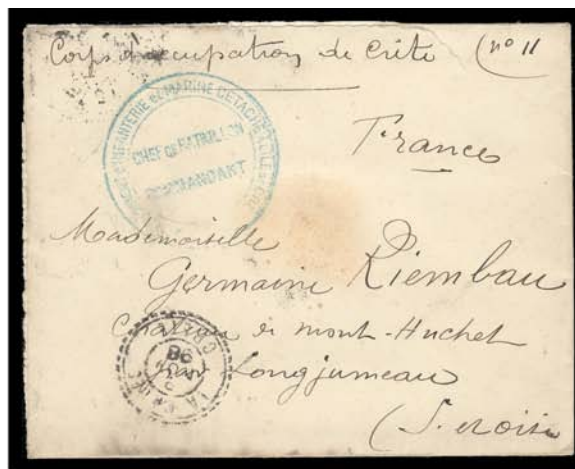 Corps d'occupation de Crète (n° 11
D'INFANTERIE DE MARINE DÉTACHÉ
CHEF DE BATAILLON
COMMANDANT
France
Mademoiselle
Germaine Riembau
Château de mont-Huchet
par Longjumeau
(S. et oise
CRÈTE
98
LA